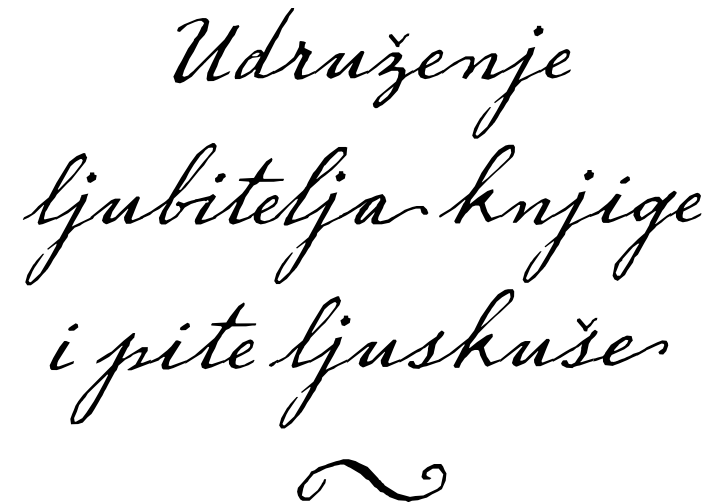 Udruženje
ljubitelja knjige
i pite ljuskuše